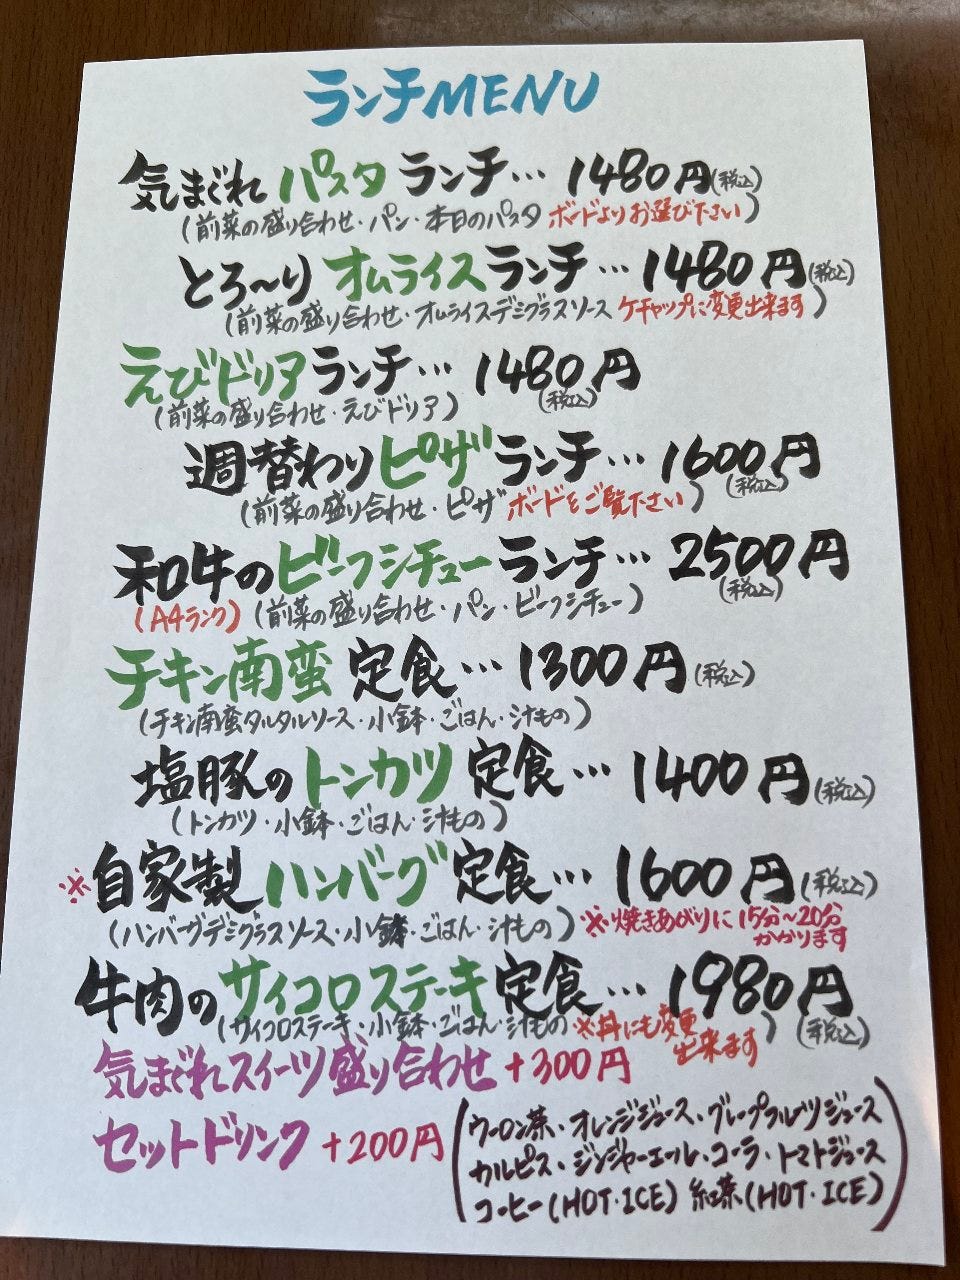 ランチMENU
気まぐれ パスタ ランチ… 1480円(税込)
(前菜の盛り合わせ・パン・本日のパスタ ボードよりお選び下さい)
とろ〜り オムライス ランチ… 1480円(税込)
(前菜の盛り合わせ・オムライスデミグラスソース ケチャップに変更出来ます)
えびドリア ランチ… 1480円
(税込)
(前菜の盛り合わせ・えびドリア)
週替わり ピザ ランチ… 1600円
(税込)
(前菜の盛り合わせ・ピザ ボードをご覧下さい)
和牛の ビーフシチュー ランチ… 2500円
(税込)
(A4ランク) (前菜の盛り合わせ・パン・ビーフシチュー)
チキン南蛮 定食… 1300円(税込)
(チキン南蛮タルタルソース・小鉢・ごはん・汁もの)
塩豚の トンカツ 定食… 1400円(税込)
(トンカツ・小鉢・ごはん・汁もの)
※自家製 ハンバーグ 定食… 1600円(税込)
(ハンバーグデミグラスソース・小鉢・ごはん・汁もの) ※焼きあがりに15分〜20分
かかります
牛肉の サイコロステーキ 定食… 1980円
(税込)
(サイコロステーキ・小鉢・ごはん・汁もの ※丼にも変更
出来ます)
気まぐれスイーツ盛り合わせ +300円
セットドリンク +200円
(ウーロン茶・オレンジジュース・グレープフルーツジュース
カルピス・ジンジャーエール・コーラ・トマトジュース
コーヒー(HOT・ICE) 紅茶(HOT・ICE))